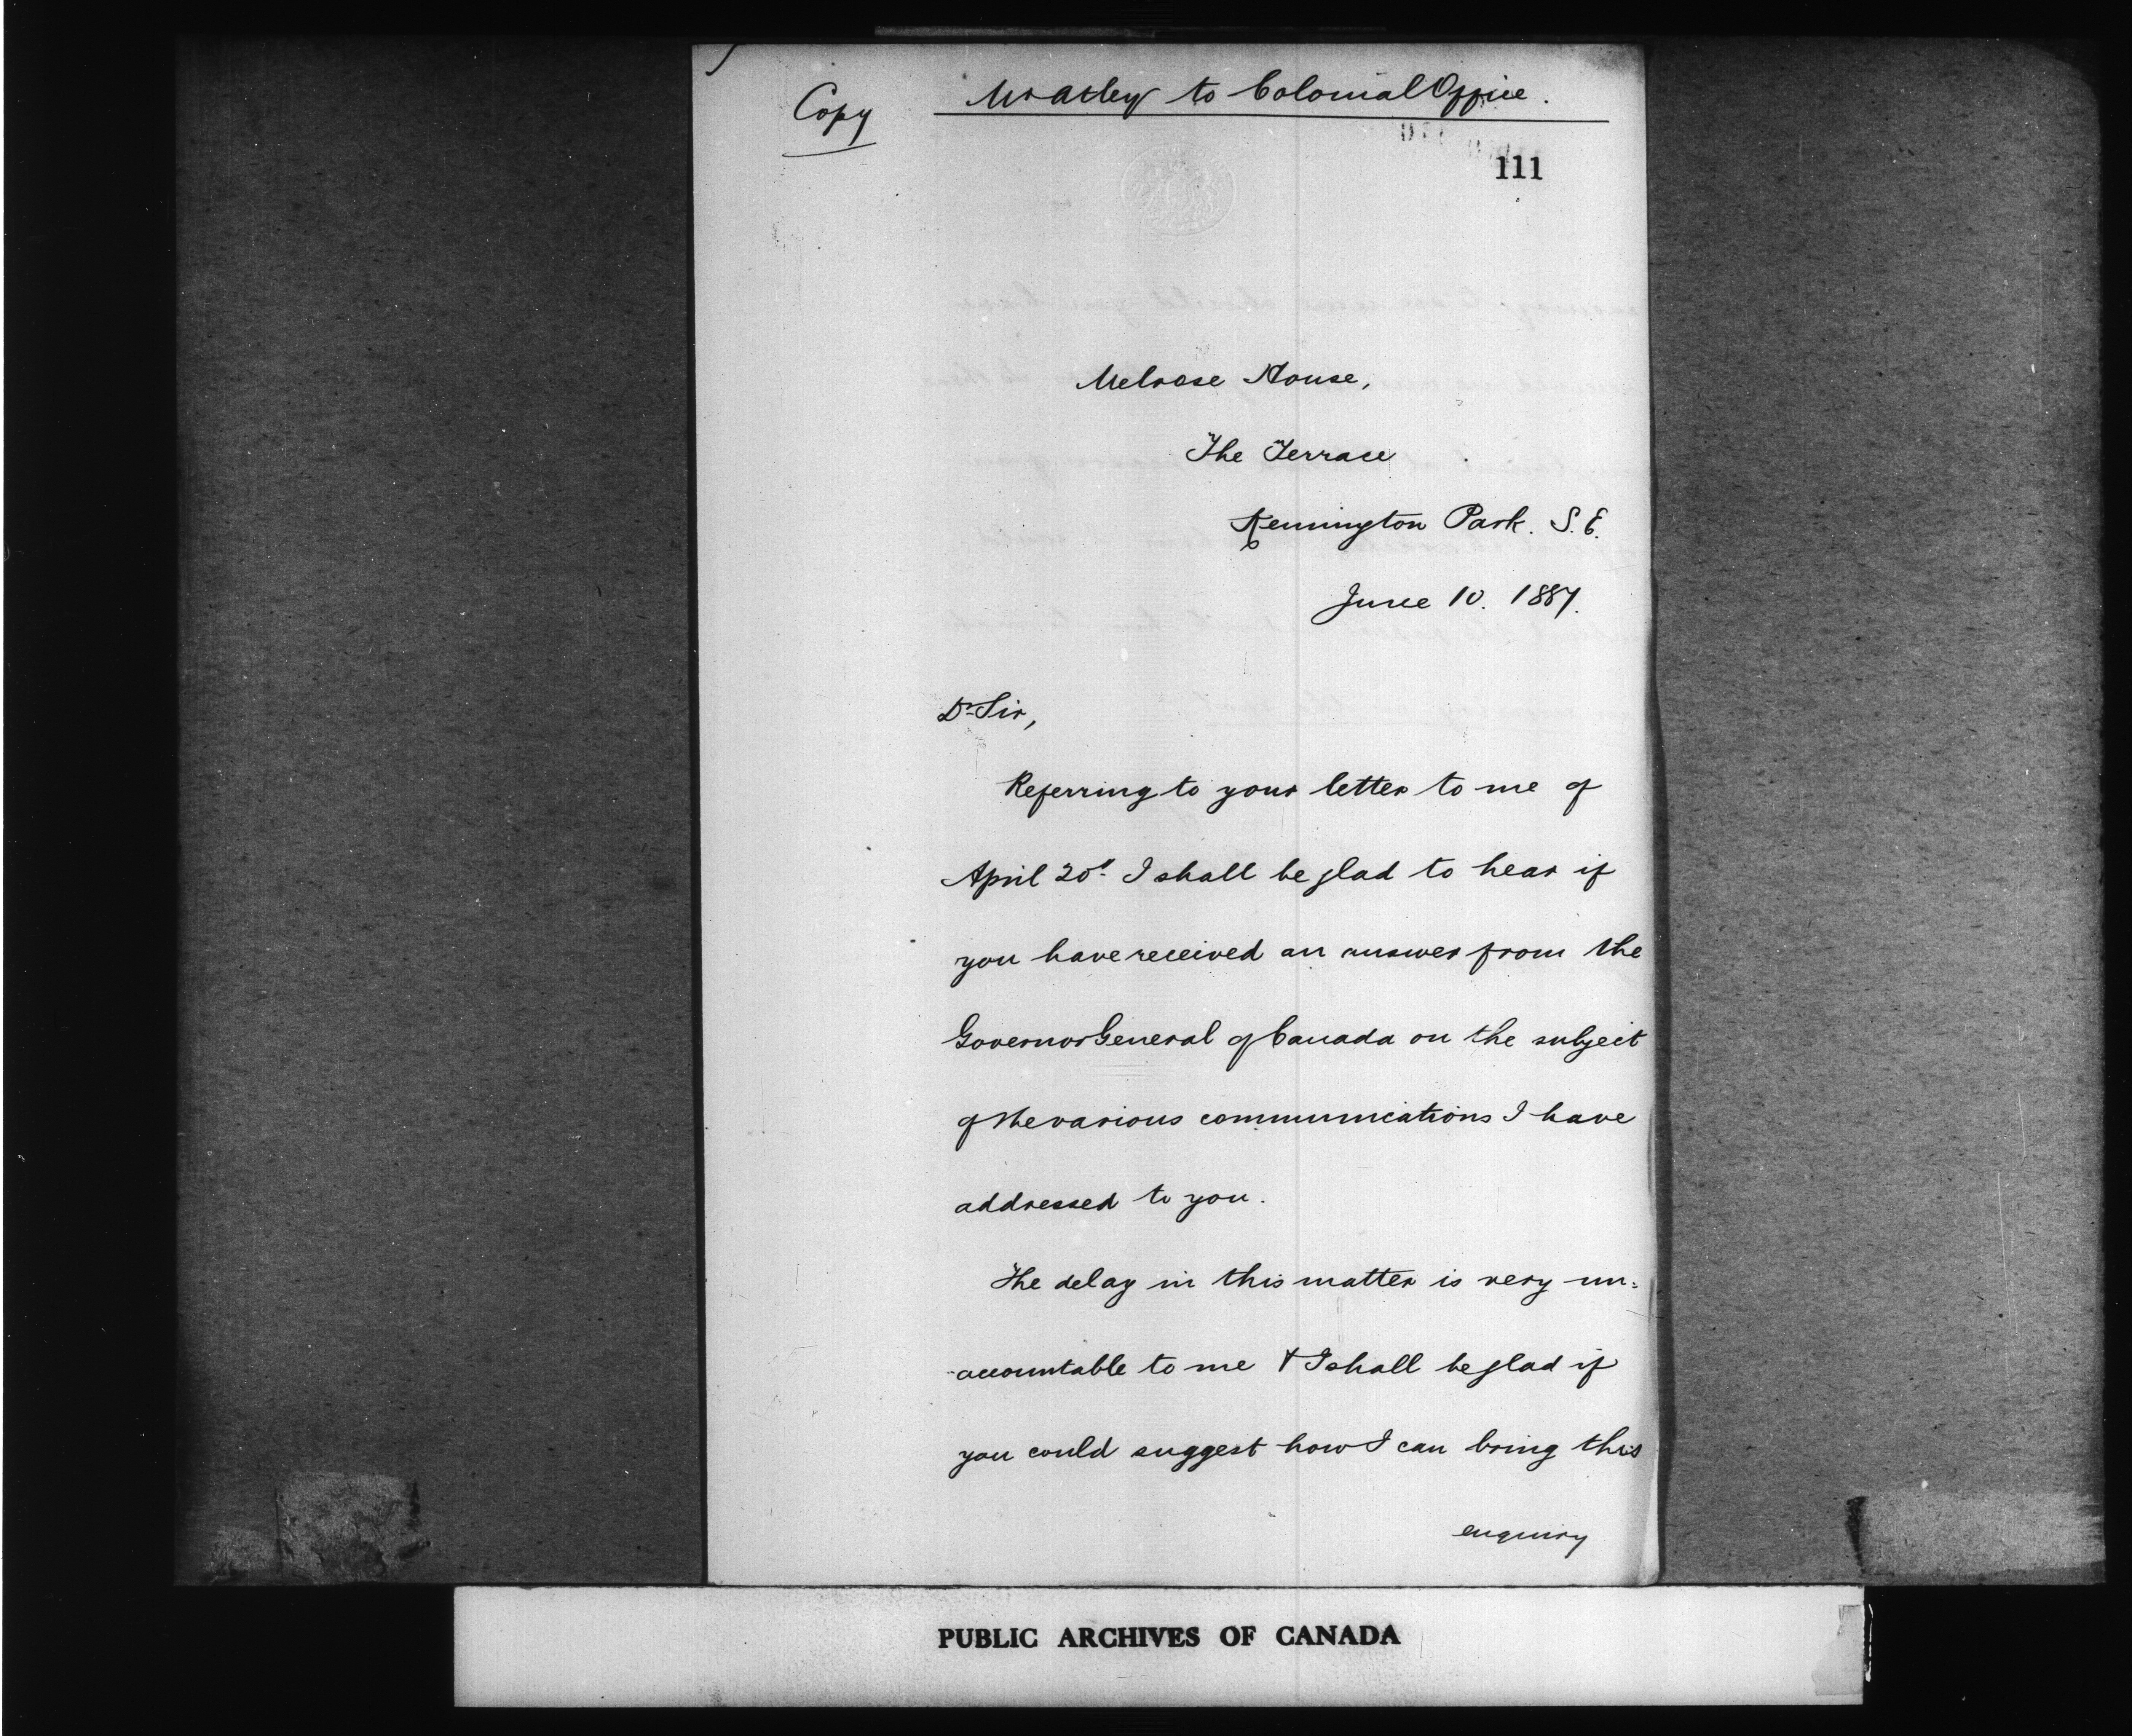 Copy
Mr Atley to Colonial Office.
111
Melrose House,
The Terrace
Kennington Park. S.E.
June 10. 1887.
Dr Sir,
Referring to your letter to me of
April 20th I shall be glad to hear if
you have received an answer from the
Governor General of Canada on the subject
of the various communications I have
addressed to you.
The delay in this matter is very un=
-accountable to me & I shall be glad if
you could suggest how I can bring this
enquiry
PUBLIC ARCHIVES OF CANADA